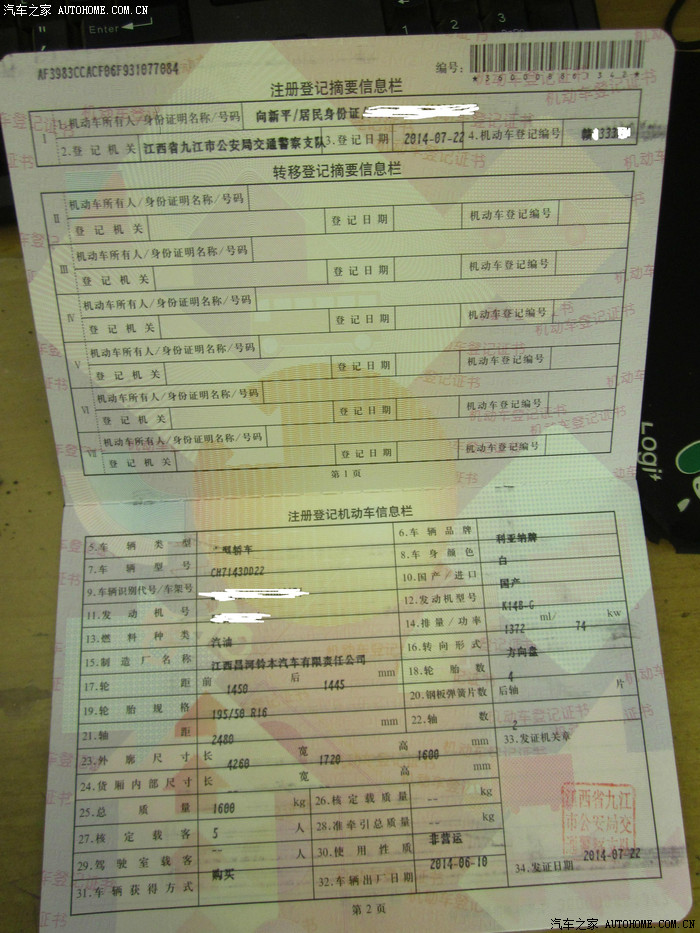 汽车之家 AUTOHOME.COM.CN
Enter
AF3983CCACF06F931077084
编号:
注册登记摘要信息栏
I 1.机动车所有人/身份证明名称/号码 向新平/居民身份证/
2.登记机关 江西省九江市公安局交通警察支队 3.登记日期 2014-07-22 4.机动车登记编号
转移登记摘要信息栏
II 机动车所有人/身份证明名称/号码
登记机关 登记日期 机动车登记编号
III 机动车所有人/身份证明名称/号码
登记机关 登记日期 机动车登记编号
IV 机动车所有人/身份证明名称/号码
登记机关 登记日期 机动车登记编号
V 机动车所有人/身份证明名称/号码
登记机关 登记日期 机动车登记编号
VI 机动车所有人/身份证明名称/号码
登记机关 登记日期 机动车登记编号
VII 机动车所有人/身份证明名称/号码
登记机关 登记日期 机动车登记编号
第1页
Logi
注册登记机动车信息栏
5.车辆类型 型轿车 6.车辆品牌 利亚纳牌
7.车辆型号 CH7143DD22 8.车身颜色 白
9.车辆识别代号/车架号 10.国产/进口 国产
11.发动机号 12.发动机型号 K14B-G
13.燃料种类 汽油 14.排量/功率 1372 ml/ 74 kw
15.制造厂名称 江西昌河铃木汽车有限责任公司 16.转向形式 方向盘
17.轮距 前 1450 后 1445 mm 18.轮胎数 4
19.轮胎规格 195/50 R16 20.钢板弹簧片数 后轴 片
21.轴距 2480 mm 22.轴数 2
23.外廓尺寸 长 4260 宽 1720 高 1600 mm 33.发证机关章
24.货厢内部尺寸 长 宽 高 mm
25.总质量 1600 kg 26.核定载质量 -- kg
27.核定载客 5 人 28.准牵引总质量 -- kg
29.驾驶室载客 -- 人 30.使用性质 非营运
31.车辆获得方式 购买 32.车辆出厂日期 2014-06-10 34.发证日期 2014-07-22
江西省九江
市公安局交
第2页
汽车之家 AUTOHOME.COM.CN